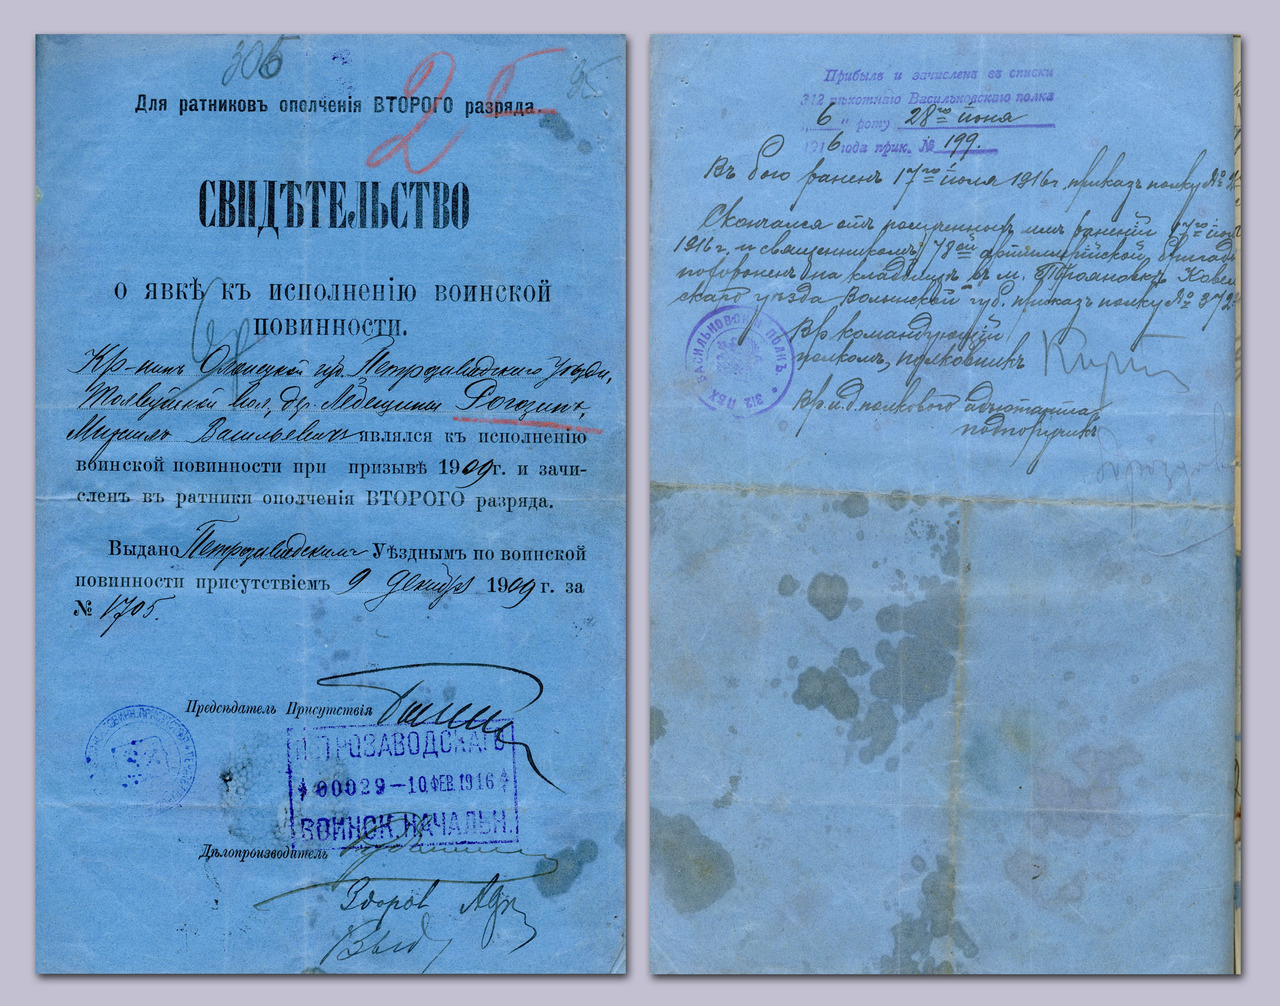 306
25
Для ратниковъ ополченія ВТОРОГО разряда.
СВИДѢТЕЛЬСТВО
О ЯВКѢ КЪ ИСПОЛНЕНІЮ ВОИНСКОЙ
ПОВИННОСТИ.
Кр-нинъ Олонецкой губ. Петрозаводскаго уѣзда,
Толвуйской вол., дер. Рогозинъ,
Михаилъ Васильевичъ являлся къ исполненію
воинской повинности при призывѣ 1909 г. и зачи-
сленъ въ ратники ополченія ВТОРОГО разряда.
Выдано Петрозаводскимъ Уѣзднымъ по воинской
повинности присутствіемъ 9 декабря 1909 г. за
№ 1705.
Предсѣдатель Присутствія
ПЕТРОЗАВОДСКАГО
00029 — 10 ФЕВ. 1916
ВОИНСК. НАЧАЛЬН.
Дѣлопроизводитель
Здоров
Прибылъ и зачисленъ въ списки
312 пѣхотнаго Васильковскаго полка
„6" роту 28го іюня
1916 года прик. № 199.
Въ бою раненъ 17го іюля 1916 г. приказъ полку №
Скончался отъ полученныхъ имъ раненій 17го іюля
1916 г. и священникомъ 78ой артиллерійской бригады
похороненъ на кладбищѣ въ м. Ковель-
скаго уѣзда Волынской губ. приказъ полку № 372
Вр. командующій
полкомъ, полковникъ
Вр. и. д. полкового адъютанта,
подпоручикъ
312 ПѢХ. ВАСИЛЬКОВСКІЙ ПОЛКЪ